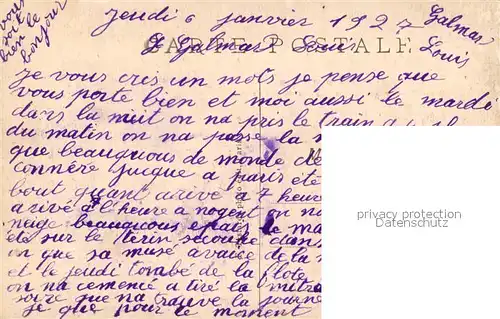 vous
soit le
bien
bonjour
Jeudi 6 janvier 1927 Galmar
CARTE POSTALE
Galmar Louis Louis
Je vous cris un mots je pense que
vous porte bien et moi aussi le mardi
dans la nuit on na pris le train a
du matin on na passe la
que beauquous de monde de
connére jucque a paris été
bout quant arive a 7 heure
arivé a l'heure a nogent on na
neige beauquous epais le ma
été sur le terin secouse dans
on que sa musé avance de la
et le jeudi tombé de la flote
on na cemencé a tiré la mitra
soire que na trouve la journé
je que pour le moment
privacy protection
Datenschutz